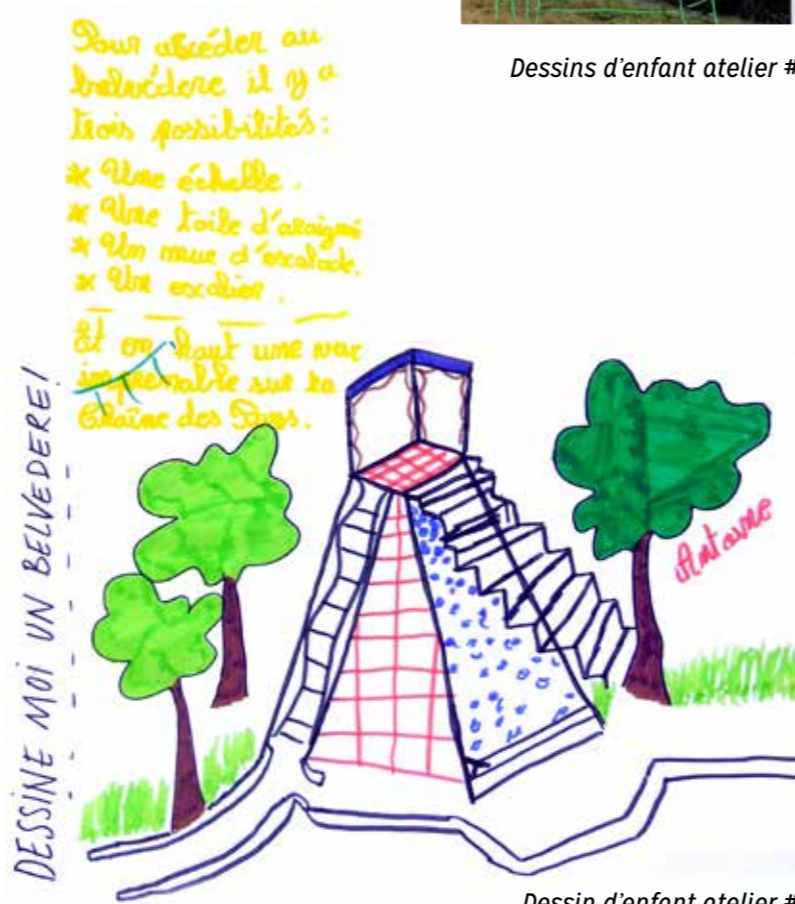 Dessins d'enfant atelier #
Pour accéder au
belvédere il y a
trois possibilités:
* Une échelle.
* Une toile d'araigné
* Un mur d'escalade.
* Un escalier.
Et en haut une vue
imprenable sur la
Chaîne des Puys.
DESSINE MOI UN BELVEDERE!
Antoine
Dessin d'enfant atelier #